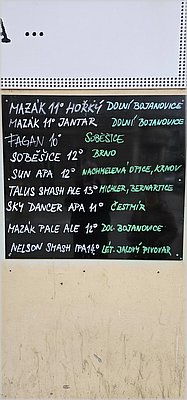 A ...
MAZÁK 11° HOŘKÝ DOLNÍ BOJANOVICE
MAZÁK 11° JANTAR DOLNÍ BOJANOVICE
FAGAN 10° SOBĚŠICE
SOBĚŠICE 12° BRNO
SUN APA 12° NACHMELENÁ OPICE, KRNOV
TALUS SMASH ALE 13° MICHLER, BERNARTICE
SKY DANCER APA 11° ČESTMÍR
MAZÁK PALE ALE 12° DOL. BOJANOVICE
NELSON SMASH IPA 14° LÉT. JALOVÝ PIVOVAR